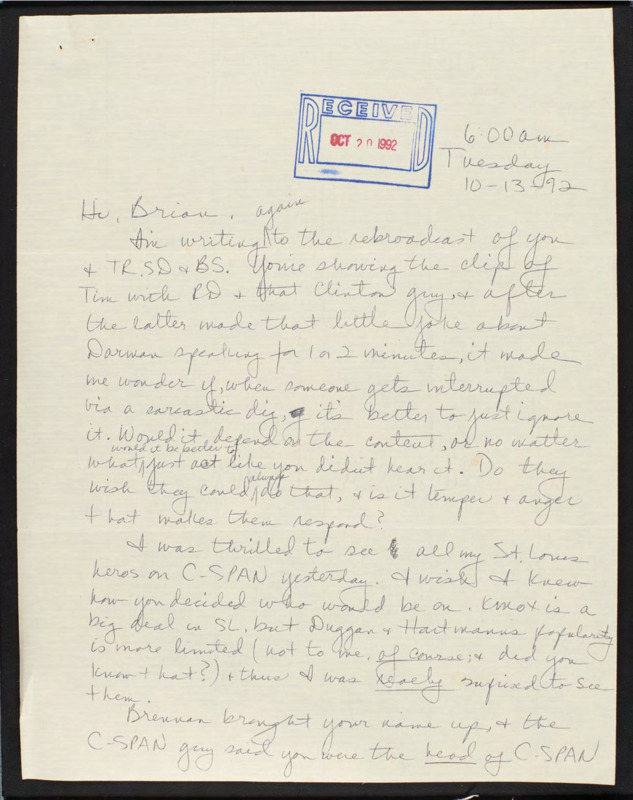 RECEIVED
OCT 20 1992
6:00 am
Tuesday
10-13-92
Hi, Brian, again
I'm writing to the rebroadcast of you
& TR, SD & BS. You're showing the clip of
Tim with RD & that Clinton guy, & after
the latter made that little joke about
Darman speaking for 1 or 2 minutes, it made
me wonder if, when someone gets interrupted
via a sarcastic dig, if it's better to just ignore
it. Would it depend on the content, or no matter
would it be better to
what, just act like you didn't hear it. Do they
always
wish they could do that, & is it temper & anger
that makes them respond?
I was thrilled to see all my St. Louis
heros on C-SPAN yesterday. I wish I knew
how you decided who would be on. KMOX is a
big deal in SL, but Duggan & Hartmanns popularity
is more limited (not to me, of course; & did you
know that?) & thus I was really suprized to see
them.
Brennan brought your name up, & the
C-SPAN guy said you were the head of C-SPAN